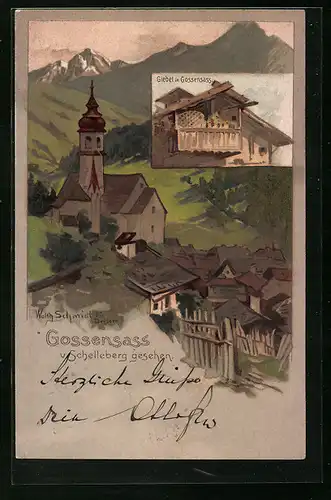 Giebel in Gossensass
Gossensass
v. Schelleberg gesehen.
Herzliche Grüße
Dein